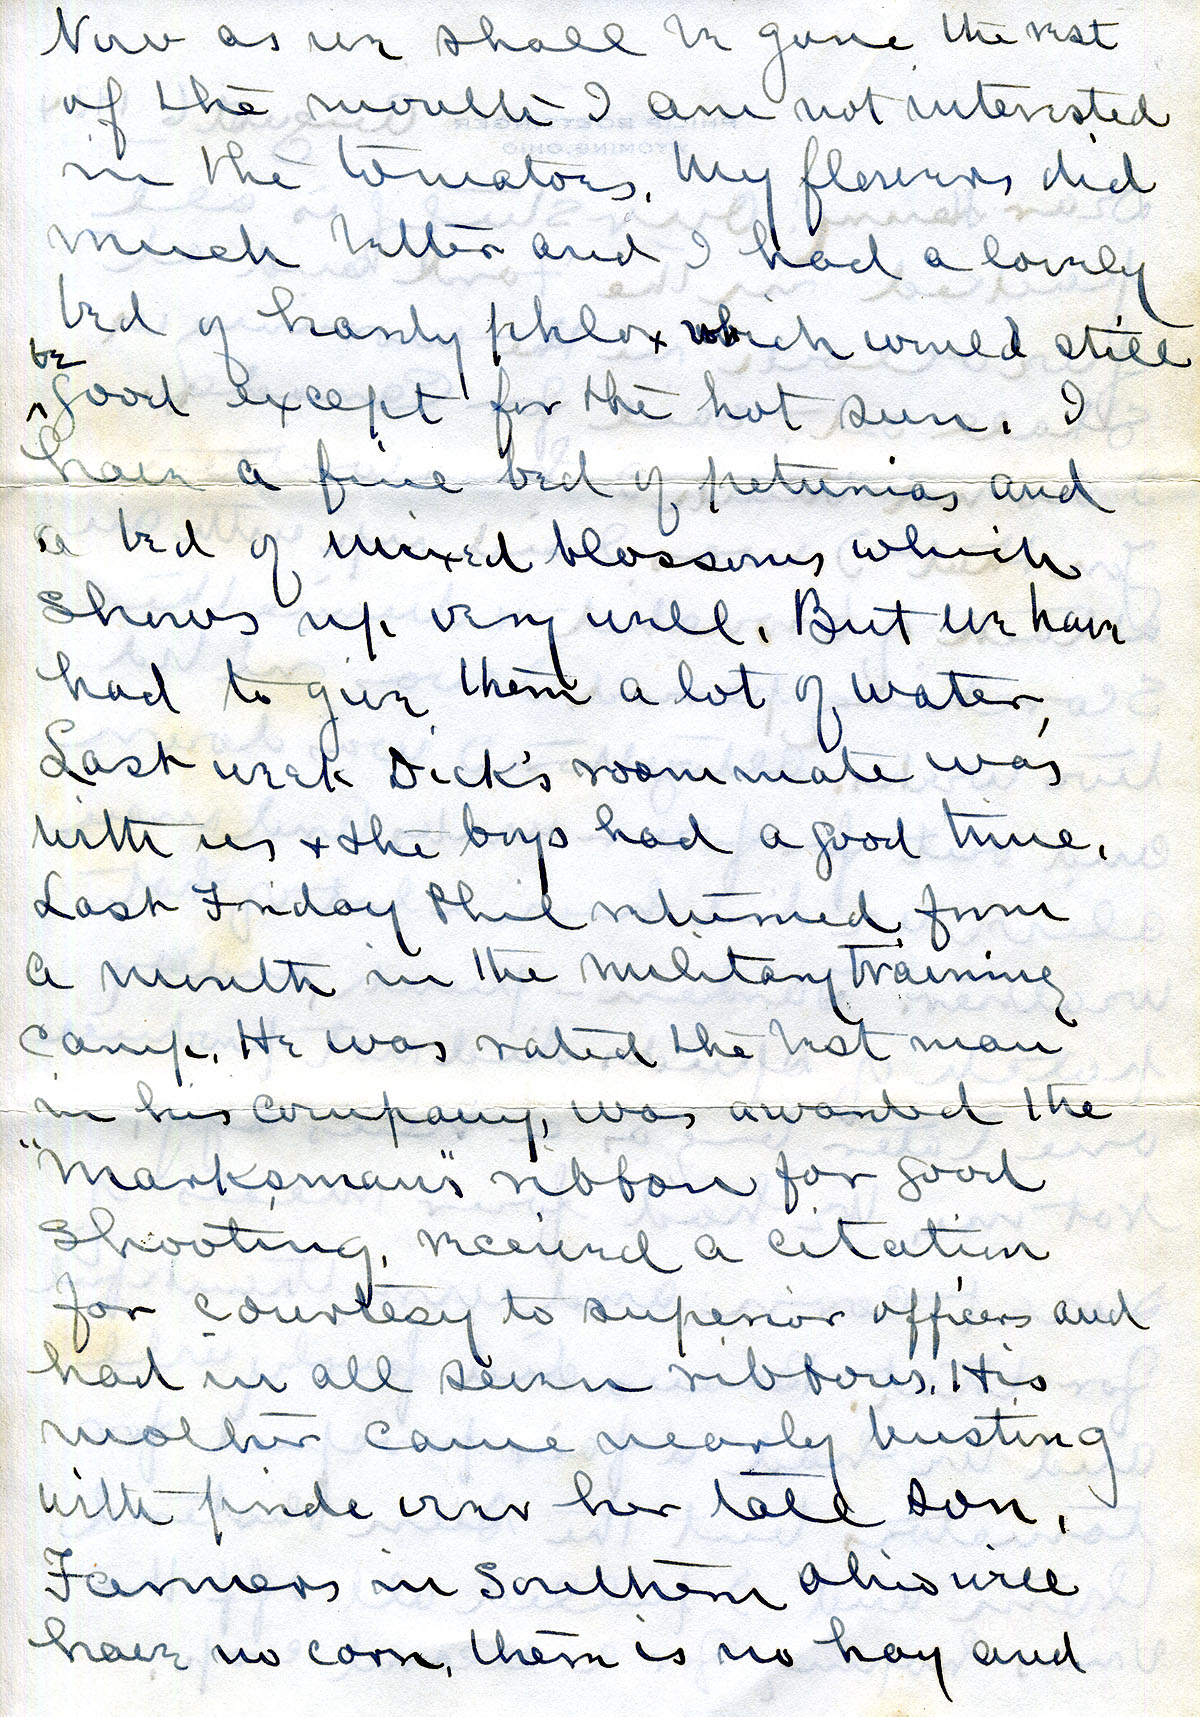 Now as we shall be gone the rest
of the month I am not interested
in the tomatoes. My flowers did
much better and I had a lovely
bed of hardy phlox which would still
be
^ good except for the hot sun. I
have a fine bed of petunias and
a bed of mixed blossoms which
shows up very well. But we have
had to give them a lot of water,
Last week Dick's roommate was
with us + the boys had a good time.
Last Friday Phil returned from
a month in the military training
camp. He was rated the best man
in his company, was awarded the
"Marksman's" ribbon for good
shooting, received a citation
for courtesy to superior officers and
had in all seven ribbons. His
mother came nearly busting
with pride over her tall son.
Farmers in Southern Ohio will
have no corn, there is no hay and